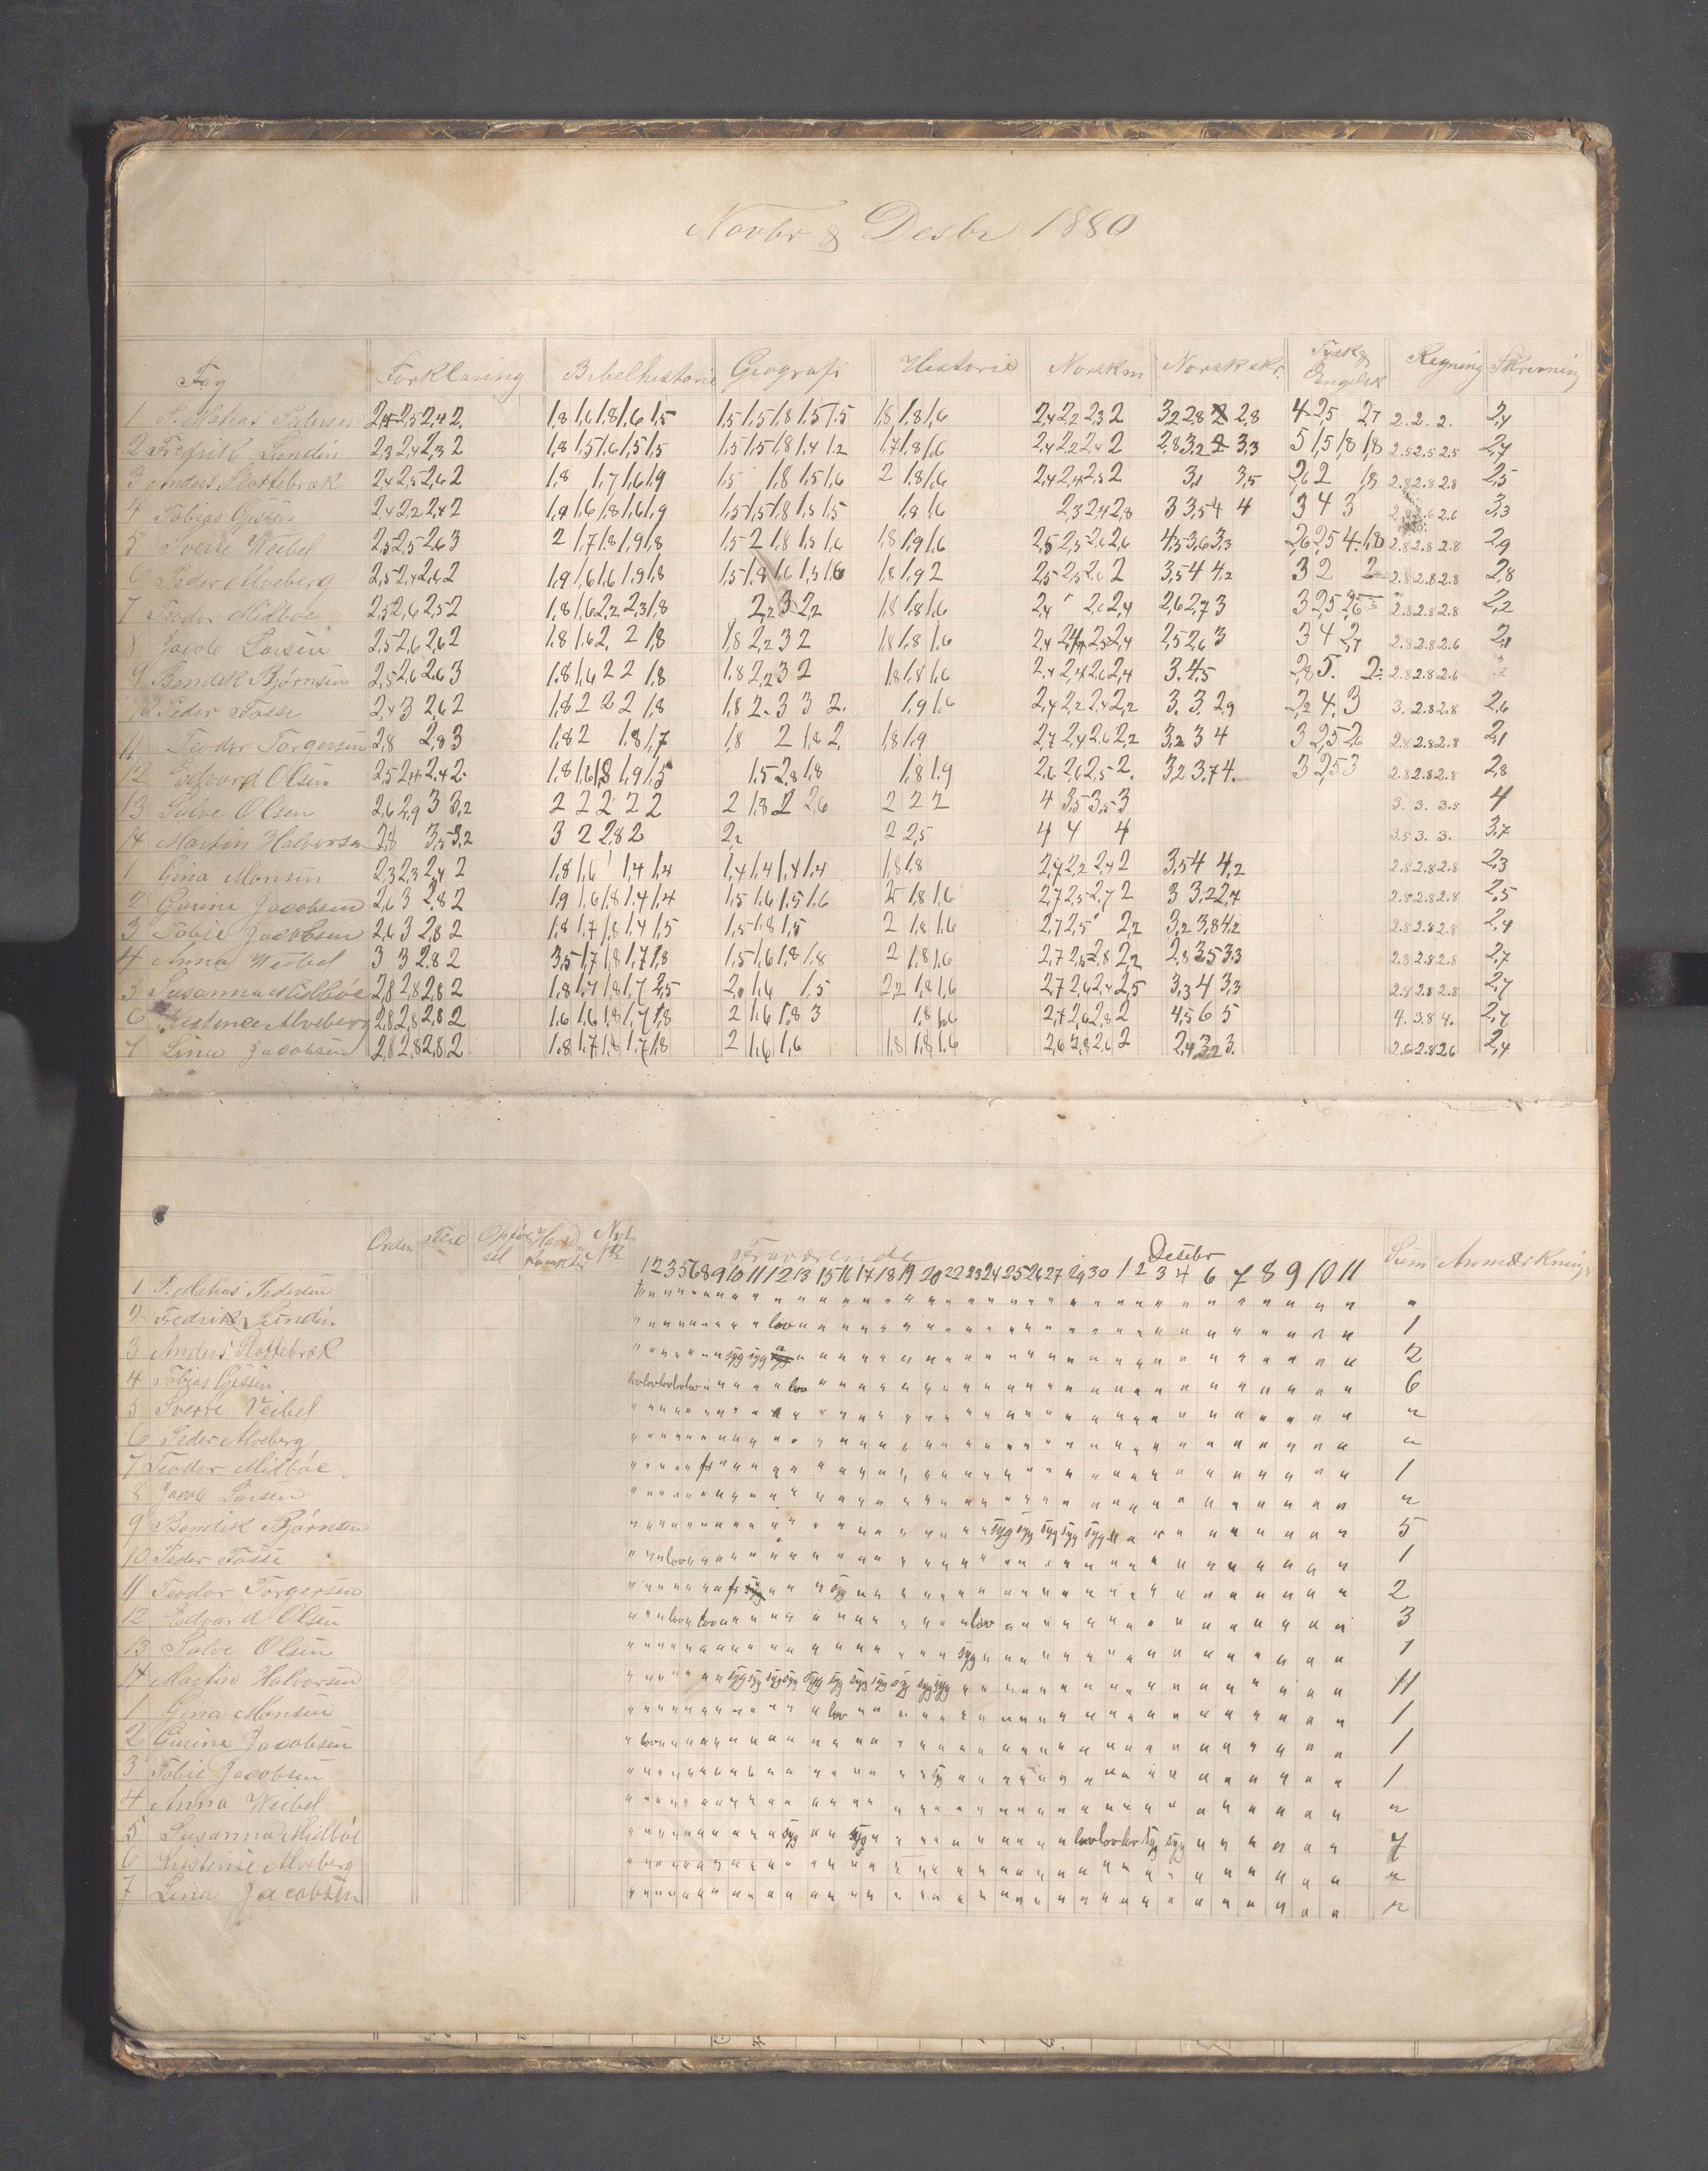 Novbr & Desbr 1880
Fag Forklaring Bibelhistorie Geografi Historie Norskm Norskskr. Tysk & Engelsk Regning Skrivning
1 P. Matias Pedersen 2,4 2,5 2,4 2. 1,8 1,6 1,8 1,6 1,5 1,5 1,5 1,8 1,5 1,5 1,8 1,8 1,6 2,4 2,2 2,3 2 3,2 2,8 2 2,8 4 2,5 2,7 2. 2. 2. 2,4
2 Fredrik Lundin 2,3 2,4 2,3 2 1,8 1,5 1,6 1,5 1,5 1,5 1,5 1,8 1,4 1,2 1,7 1,8 1,6 2,4 2,2 2,4 2 2,8 3,2 2 3,3 5 1,5 1,8 1,8 2.5 2.5 2.5 2,7
3 Anders Slottebrak 2,4 2,5 2,6 2 1,8 1,7 1,6 1,9 1,5 1,8 1,5 1,6 2 1,8 1,6 2,4 2,4 2,5 2 3,1 3,5 2,6 2 1,8 2.8 2.8 2.8 2,5
4 Tobias Gissen 2,4 2,2 2,4 2 1,9 1,6 1,8 1,6 1,9 1,5 1,5 1,8 1,5 1,5 1,8 1,6 2,3 2,4 2,8 3 3,5 4 4 3 4 3 2.6 2.6 3,3
5 Sverre Weibel 2,5 2,5 2,6 3 2 1,7 1,8 1,9 1,8 1,5 2 1,8 1,5 1,6 1,8 1,9 1,6 2,5 2,5 2,6 2,6 4,5 3,6 3,3 2,6 2,5 4 1,8 2.8 2.8 2.8 2,9
6 Peder Alveberg 2,5 2,4 2,6 2 1,9 1,6 1,6 1,9 1,8 1,5 1,8 1,6 1,5 1,6 1,8 1,9 2 2,5 2,5 2,6 2 3,5 4 4,2 3 2 2 2.8 2.8 2.8 2,8
7 Teodor Midbøe 2,5 2,6 2,5 2 1,8 1,6 2,2 2,3 1,8 2,2 3 2,2 1,8 1,8 1,6 2,4 2,6 2,4 2,6 2,7 3 3 2,5 2,6 2.8 2.8 2.8 2,2
8 Jacob Larsen 2,5 2,6 2,6 2 1,8 1,6 2, 2 1,8 1,8 2,2 3 2 1,8 1,8 1,6 2,4 2,4 2,5 2,4 2,5 2,6 3 3 4 2,7 2.8 2.8 2.6 2,1
9 Bendik Bjørnsen 2,5 2,6 2,6 3 1,8 1,6 2 2 1,8 1,8 2,2 3 2 1,8 1,8 1,6 2,4 2,4 2,6 2,4 3. 4,5 2,8 5. 2. 2.8 2.8 2.6 2
10 Peder Fosse 2,4 3 2,6 2 1,8 2 2 2 1,8 1,8 2. 3 3 2. 1,9 1,6 2,4 2,2 2,4 2,2 3. 3. 2,9 2,2 4. 3 3. 2.8 2.8 2,6
11 Teodor Torgersen 2,8 2,8 3 1,8 2 1,8 1,7 1,8 2 1,8 2, 1,8 1,9 2,7 2,4 2,6 2,2 3,2 3 4 3 2,5 2,6 2.8 2.8 2.8 2,1
12 Edvard Olsen 2,5 2,4 2,4 2. 1,8 1,6 1,8 1,9 1,5 1,5 2,8 1,8 1,8 1,9 2,6 2,6 2,5 2. 3,2 3,7 4. 3 2,5 3 2.8 2.8 2.8 2,8
13 Salve Olsen 2,6 2,9 3 3,2 2 2 2 2 2 2 1,8 2 2,6 2 2 2 4 3,5 3,5 3 3. 3. 3.5 4
14 Martin Halvorsen 2,8 3,5 3,2 3 2 2,8 2 2,2 2 2,5 4 4 4 3.5 3. 3. 3,7
1 Gina Monsen 2,3 2,3 2,4 2 1,8 1,6 1,4 1,4 1,4 1,4 1,4 1,4 1,8 1,8 2,7 2,2 2,4 2 3,5 4 4,2 2.8 2.8 2.8 2,3
2 Gurine Jacobsen 2,6 3 2,8 2 1,9 1,6 1,8 1,4 1,4 1,5 1,6 1,5 1,6 2 1,8 1,6 2,7 2,5 2,7 2 3 3,2 2,4 2.8 2.8 2.8 2,5
3 Tobie Jacobsen 2,6 3 2,8 2 1,8 1,7 1,8 1,4 1,5 1,5 1,8 1,5 2 1,8 1,6 2,7 2,5 2,2 3,2 3,8 4,2 2.8 2.8 2.8 2,4
4 Anna Weibel 3 3 2,8 2 3,5 1,7 1,8 1,7 1,8 1,5 1,6 1,8 1,8 2 1,8 1,6 2,7 2,5 2,8 2,2 2,8 3,5 3,3 2.8 2.8 2.8 2,7
5 Susanna Midbøe 2,8 2,8 2,8 2 1,8 1,7 1,8 1,7 2,5 2, 1,6 1,5 2,2 1,8 1,6 2,7 2,6 2,4 2,5 3,3 4 3,3 2.8 2.8 2.8 2,7
6 Kristence Alveberg 2,8 2,8 2,8 2 1,6 1,6 1,8 1,7 1,8 2 1,6 1,8 3 1,8 1,6 2,7 2,6 2,8 2 4,5 6 5 4. 3.8 4. 2,7
7 Lina Jacobsen 2,8 2,8 2,8 2 1,8 1,7 1,8 1,7 1,8 2 1,6 1,6 1,8 1,8 1,6 2,6 2,8 2,6 2 2,4 3,2 3. 2.6 2.8 2.6 2,4
Orden Flid Opførsel Hovedkarakter Fraværende Desbr Sum Anmærkninger
1 2 3 5 6 8 9 10 11 12 13 15 16 17 18 19 20 22 23 24 25 26 27 29 30 1 2 3 4 6 7 8 9 10 11
1 P. Matias Pedersen "
2 Fredrik Lundin lov 1
3 Anders Slottebrak syg syg syg 2
4 Tobias Gissen lov lov lov lov lov lov 6
5 Sverre Veibel "
6 Peder Alveberg "
7 Teodor Midbøe fr 1
8 Jacob Larsen "
9 Bendik Bjørnsen syg syg syg syg syg 5
10 Peder Fosse lov 1
11 Teodor Torgersen fr syg syg 2
12 Edvard Olsen lov lov lov 3
13 Salve Olsen syg 1
14 Martin Halvorsen syg syg syg syg syg syg syg syg syg syg syg 11
1 Gina Monsen lov 1
2 Gurine Jacobsen lov 1
3 Tobie Jacobsen syg 1
4 Anna Weibel "
5 Susanna Midbøe syg syg lov lov lov syg syg 7
6 Kristense Alveberg "
7 Lina Jacobsen "